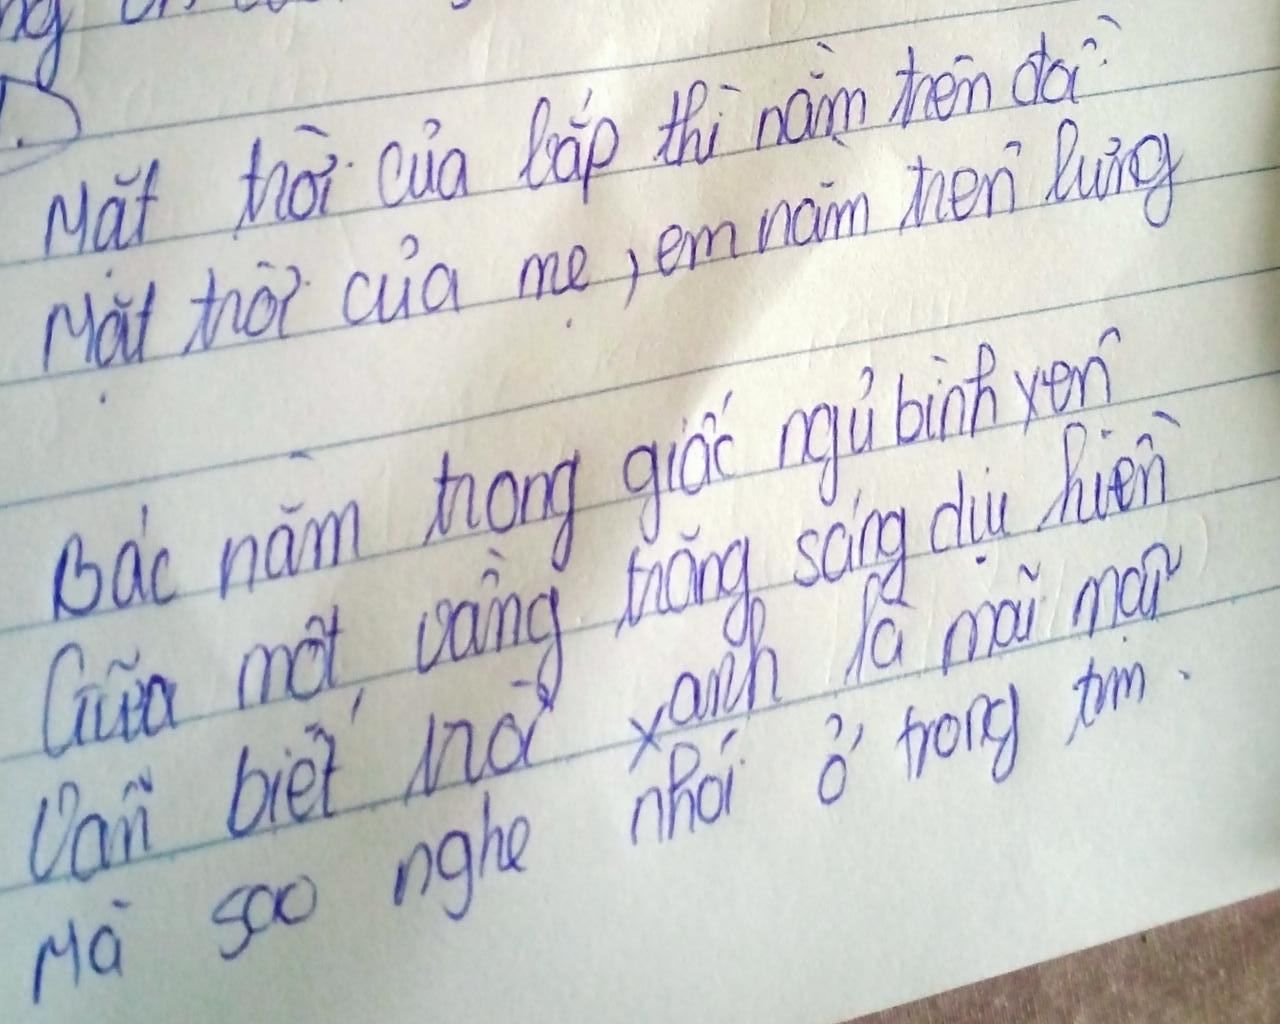 Mặt trời của bắp thì nằm trên đồi
Mặt trời của mẹ, em nằm trên lưng
Bác nằm trong giấc ngủ bình yên
Giữa một vầng trăng sáng dịu hiền
Vẫn biết trời xanh là mãi mãi
Mà sao nghe nhói ở trong tim.